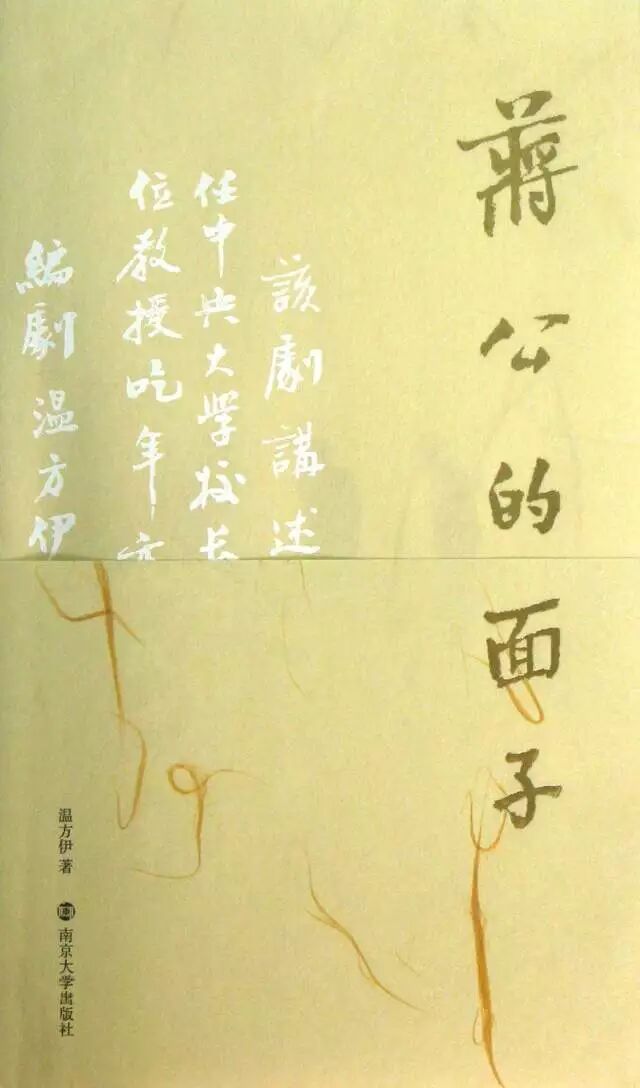 蔣公的面子
該劇講述
任中央大學校長
位教授吃年
編劇 温方伊
温方伊 著
南京大学出版社